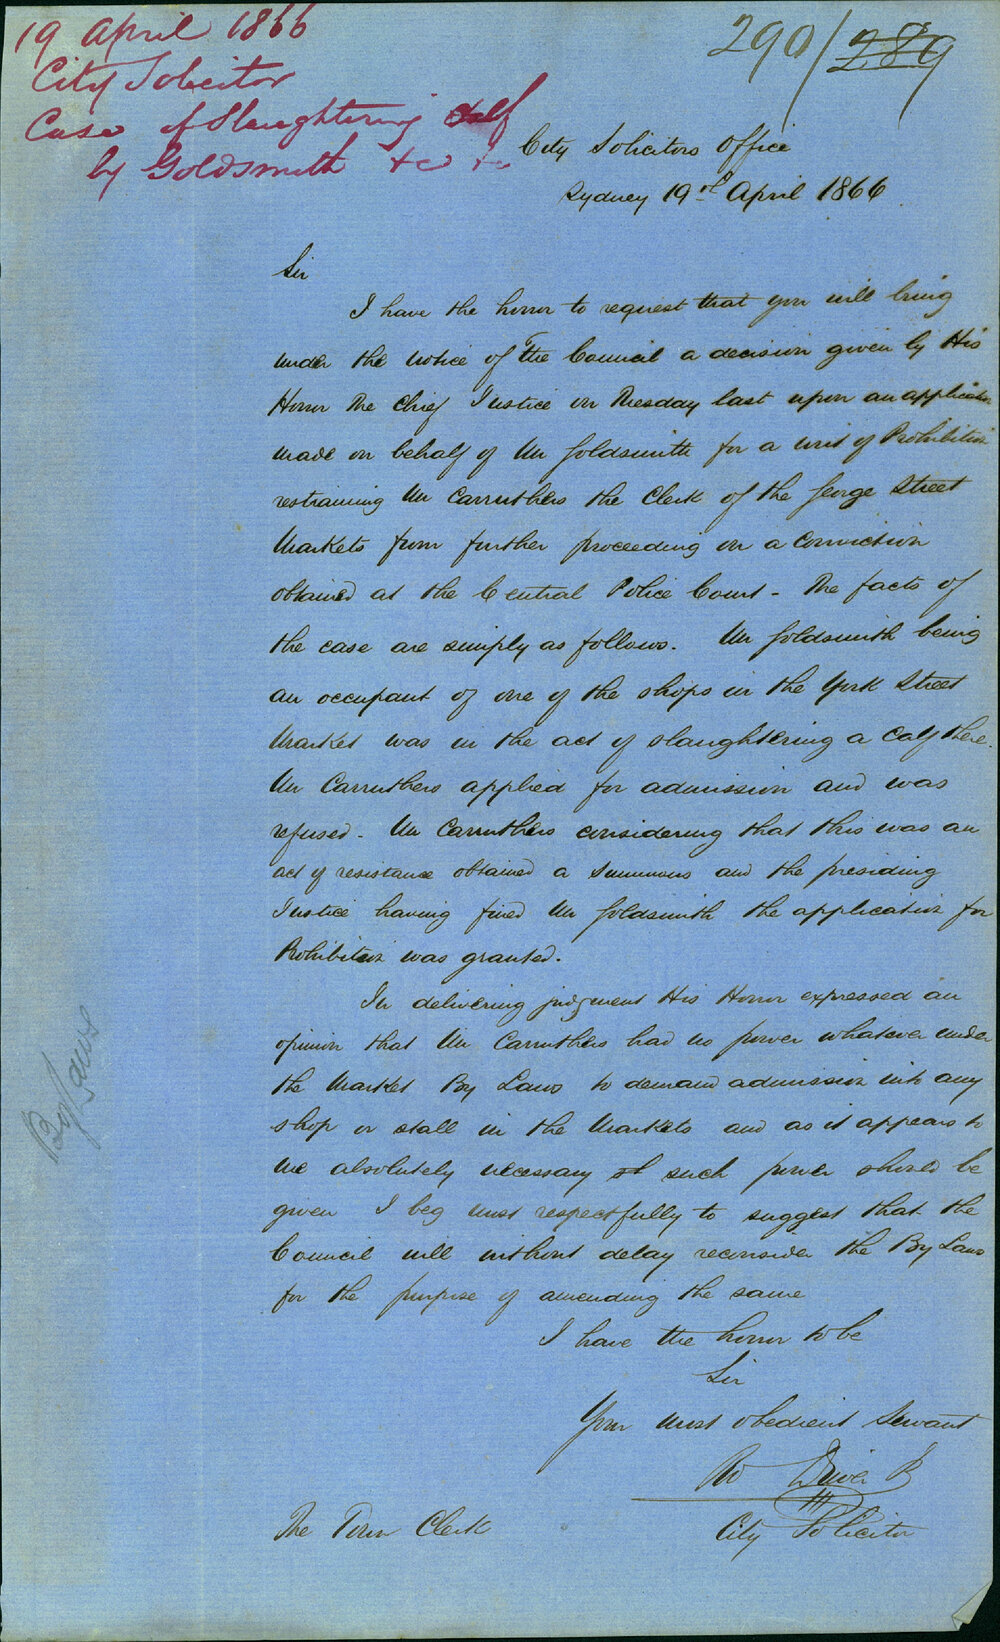 19 April 1866
City Solicitor
Case of Slaughtering Calf
by Goldsmith &c &c
290/289
City Solicitors Office
Sydney 19th April 1866
Sir
I have the honor to request that you will bring
under the notice of the Council a decision given by His
Honor The Chief Justice on Tuesday last upon an application
made on behalf of Mr Goldsmith for a writ of Prohibition
restraining Mr Carruthers the Clerk of the George Street
Markets from further proceeding on a conviction
obtained at the Central Police Court - The facts of
the case are simply as follows. Mr Goldsmith being
an occupant of one of the shops in the York Street
Market was in the act of slaughtering a Calf there.
Mr Carruthers applied for admission and was
refused - Mr Carruthers considering that this was an
act of resistance obtained a Summons and the presiding
Justice having fined Mr Goldsmith the application for
Prohibition was granted.
In delivering judgment His Honor expressed an
opinion that Mr Carruthers had no power whatever under
the Market By Laws to demand admission into any
shop or stall in the Markets and as it appears to
me absolutely necessary such power should be
given I beg most respectfully to suggest that the
Council will without delay reconsider the By Laws
for the purpose of amending the same
I have the honor to be
Sir
Your most obedient Servant
Rd Driver Jr
City Solicitor
The Town Clerk
By Laws